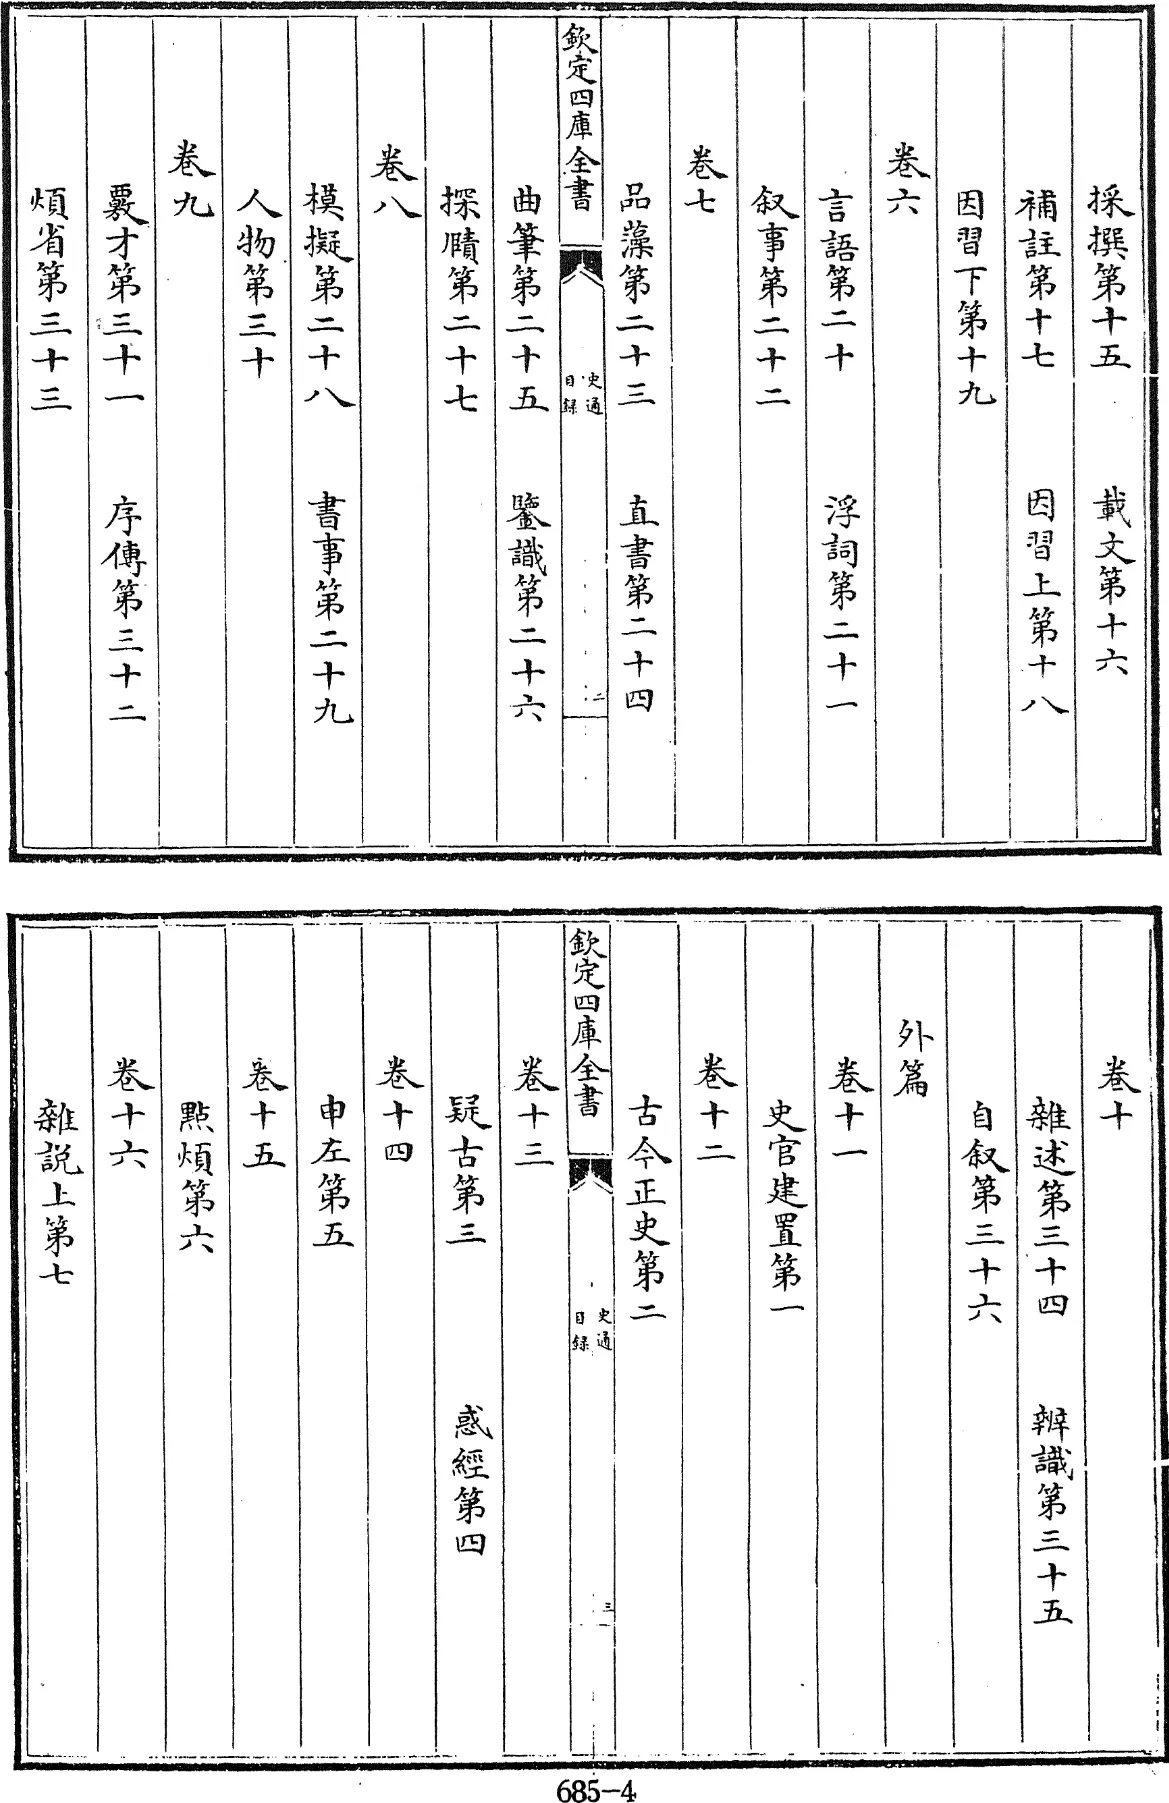 採撰第十五　載文第十六
補註第十七　因習上第十八
因習下第十九
卷六
言語第二十　浮詞第二十一
叙事第二十二
卷七
品藻第二十三　直書第二十四
欽定四庫全書
史通
目録
二
曲筆第二十五　鑒識第二十六
探賾第二十七
卷八
模擬第二十八　書事第二十九
人物第三十
卷九
覈才第三十一　序傳第三十二
煩省第三十三
卷十
雜述第三十四　辨識第三十五
自叙第三十六
外篇
卷十一
史官建置第一
卷十二
古今正史第二
欽定四庫全書
史通
目録
三
卷十三
疑古第三　惑經第四
卷十四
申左第五
卷十五
點煩第六
卷十六
雜説上第七
685-4